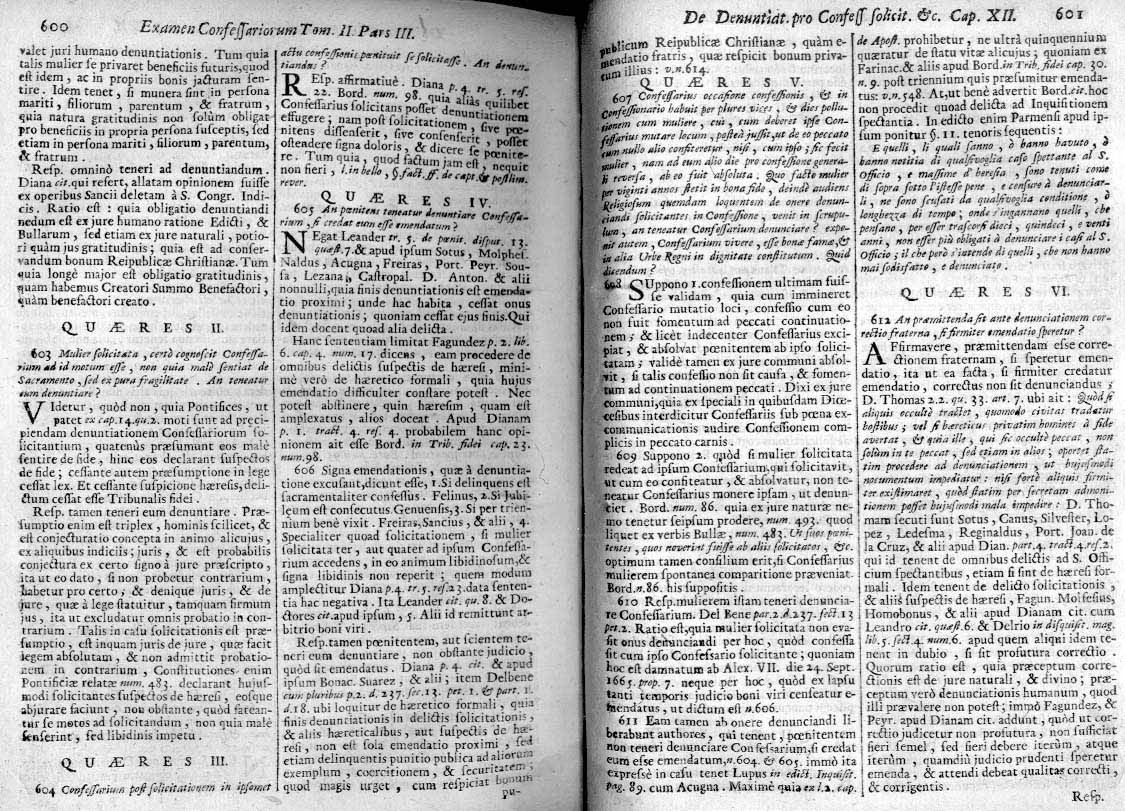 600 Examen Confessariorum Tom. II. Pars III.
valet juri humano denuntiationis. Tum quia
talis mulier se privaret beneficiis futuris, quod
est idem, ac in propriis bonis jacturam sen-
tire. Idem tenet, si munera sint in persona
mariti, filiorum, parentum, & fratrum,
quia natura gratitudinis non solùm obligat
pro beneficiis in propria persona susceptis, sed
etiam in persona mariti, filiorum, parentum,
& fratrum.
Resp. omninò teneri ad denuntiandum.
Diana cit. qui refert, allatam opinionem fuisse
ex operibus Sancii deletam à S. Congr. Indi-
cis. Ratio est: quia obligatio denuntiandi
nedum est ex jure humano ratione Edicti, &
Bullarum, sed etiam ex jure naturali, potio-
ri quàm jus gratitudinis; quia est ad conser-
vandum bonum Reipublicæ Christianæ. Tum
quia longè major est obligatio gratitudinis,
quam habemus Creatori Summo Benefactori,
quàm benefactori creato.
QUÆRES II.
603 Mulier solicitata, certò cognoscit Confessa-
rium ad id motum esse, non quia malè sentiat de
Sacramento, sed ex pura fragilitate. An teneatur
eum denuntiare?
VIdetur, quòd non, quia Pontifices, ut
patet ex cap. 14. qu. 2. moti sunt ad præci-
piendam denuntiationem Confessariorum so-
licitantium, quatenùs præsumunt eos malè
sentire de fide, hinc eos declarant suspectos
de fide; cessante autem præsumptione in lege
cessat lex. Et cessante suspicione hæresis, deli-
ctum cessat esse Tribunalis fidei.
Resp. tamen teneri eum denuntiare. Præ-
sumptio enim est triplex, hominis scilicet, &
est conjecturatio concepta in animo alicujus,
ex aliquibus indiciis; juris, & est probabilis
conjectura ex certo signo à jure præscripto,
ita ut eo dato, si non probetur contrarium,
habetur pro certo; & denique juris, & de
jure, quæ à lege statuitur, tamquam firmum
jus, ita ut excludatur omnis probatio in con-
trarium. Talis in casu solicitationis est præ-
sumptio, est inquam juris de jure, quæ facit
legem absolutam, & non admittit probatio-
nem in contrarium, Constitutiones enim
Pontificiæ relatæ num. 483. declarant hujus-
modi solicitantes suspectos de hæresi, eosque
abjurare faciunt, non obstante, quòd farean-
tur se motos ad solicitandum, non quia malè
senserint, sed libidinis impetu.
QUÆRES III.
604 Confessarium post solicitationem in ipsomet
actu confessionis pœnituit se solicitasse. An denun-
tiandus?
REsp. affirmativè. Diana p. 4. tr. 5. res.
22. Bord. num. 98. quia aliàs quilibet
Confessarius solicitans posset denuntiationem
effugere; nam post solicitationem, sive pœ-
nitens dissenserit, sive consenserit, posset
ostendere signa doloris, & dicere se pœnite-
re. Tum quia, quod factum jam est, nequit
non fieri, l. in bello, §. fact. ff. de capt. & postlim.
rever.
QUÆRES IV.
605 An pœnitens teneatur denuntiare Confessa-
rium, si credat eum esse emendatum?
NEgat Leander tr. 5. de pœnit. disput. 13.
quæst. 7. & apud ipsum Sotus, Molphes.
Naldus, Acugna, Freiras, Port. Peyr. Sou-
sa, Lezana, Castropal. D. Anton. & alii
nonnulli, quia finis denuntiationis est emenda-
tio proximi; unde hac habita, cessat onus
denuntiationis; quoniam cessat ejus finis. Qui
idem docent quoad alia delicta.
Hanc sententiam limitat Fagundez p. 2. lib.
6. cap. 4. num. 17. dicens, eam procedere de
omnibus delictis suspectis de hæresi, mini-
mè verò de hæretico formali, quia hujus
emendatio difficulter constare potest. Nec
potest abstinere, quin hæresim, quam est
amplexatus, alios doceat. Apud Dianam
p. 1. tract. 4. res. 4. probabilem hanc opi-
nionem ait esse Bord. in Trib. fidei cap. 23.
num. 98.
606 Signa emendationis, quæ à denuntia-
tione excusant, dicunt esse, 1. Si delinquens est
sacramentaliter confessus. Felinus, 2. Si Jubi-
lęum est consecutus. Genuensis, 3. Si per trien-
nium benè vixit. Freiras, Sancius, & alii, 4.
Specialiter quoad solicitationem, si mulier
solicitata ter, aut quater ad ipsum Confessa-
rium accedens, in eo animum libidinosum, &
signa libidinis non reperit; quem modum
amplectitur Diana p. 4. tr. 5. res. 23. data senten-
tia hac negativa. Ita Leander cit. qu. 8. & Do-
ctores cit. apud ipsum, 5. Alii id remittunt ar-
bitrio boni viri.
Resp. tamen pœnitentem, aut scientem te-
neri eum denuntiare, non obstante judicio,
quòd sit emendatus. Diana p. 4. cit. & apud
ipsum Bonac. Suarez, & alii; item Delbene
cum pluribus p. 2. d. 237. sec. 13. pet. 1. & part. 1.
d. 18. ubi loquitur de hæretico formali, quia
finis denuntiationis in delictis solicitationis,
& aliis hæreticalibus, aut suspectis de hæ-
resi, non est sola emendatio proximi, sed
etiam delinquentis punitio publica ad aliorum
exemplum, coercitionem, & securitatem;
quod magis urget, cum respiciat bonum
pu-
De Denuntiat. pro Confess. solicit. &c. Cap. XII. 601
publicum Reipublicæ Christianæ, quàm e-
mendatio fratris, quæ respicit bonum priva-
tum illius: v. n. 614.
QUÆRES V.
607 Confessarius occasione confessionis, & in
Confessionario habuit per plures vices, & dies pollu-
tionem cum muliere, cui, cum deberet ipse Con-
fessarius mutare locum, posteà jussit, ut de eo peccato
cum nullo alio confiteretur, nisi, cum ipso; sic fecit
mulier, nam ad eum alio die pro confessione genera-
li reversa, ab eo fuit absoluta. Quo facto mulier
per viginti annos stetit in bona fide, deindè audiens
Religiosum quemdam loquentem de onere denun-
ciandi solicitantes in Confessione, venit in scrupu-
lum, an teneatur Confessarium denunciare? expo-
nit autem, Confessarium vivere, esse bonæ famæ, &
in alia Urbe Regni in dignitate constitutum. Quid
dicendum?
608 SUppono 1. confessionem ultimam fuis-
se validam, quia cum immineret
Confessario mutatio loci, confessio cum eo
non fuit fomentum ad peccati continuatio-
nem; & licèt indecenter Confessarius exci-
piat, & absolvat pœnitentem ab ipso solici-
tatam; validè tamen ex jure communi absol-
vit, si talis confessio non sit causa, & fomen-
tum ad continuationem peccati. Dixi ex jure
communi, quia ex speciali in quibusdam Diœ-
cesibus interdicitur Confessariis sub pœna ex-
communicationis audire Confessionem com-
plicis in peccato carnis.
609 Suppono 2. quòd si mulier solicitata
redeat ad ipsum Confessarium, qui solicitavit,
ut cum eo confiteatur, & absolvatur, non te-
neatur Confessarius monere ipsam, ut denun-
ciet. Bord. num. 86. quia ex jure naturæ ne-
mo tenetur seipsum prodere, num. 493. quod
liquet ex verbis Bullæ, num. 483. Ut suos pœni-
tentes, quos noverint fuisse ab aliis solicitatos, &c.
optimum tamen consilium erit, si Confessarius
mulierem spontanea comparitione præveniat.
Bord. n. 86. his suppositis.
610 Resp. mulierem istam teneri denuncia-
re Confessarium. Del Bene par. 2. d. 237. sect. 13.
pet. 2. Ratio est, quia mulier solicitata non eva-
sit onus denunciandi per hoc, quòd confessa
sit cum ipso Confessario solicitante; quoniam
hoc est damnatum ab Alex. VII. die 24. Sept.
1665. prop. 7. neque per hoc, quòd ex lapsu
tanti temporis judicio boni viri censeatur e-
mendatus, ut dictum est n. 606.
611 Eam tamen ab onere denunciandi li-
berabunt authores, qui tenent, pœnitentem
non teneri denunciare Confessarium, si credat
eum esse emendatum, n. 604. & 605. immò ita
expressè in casu tenet Lupus in edict. Inquisit.
pag. 89. cum Acugna. Maximè quia ex l. 2. cap.
de Apost. prohibetur, ne ultrà quinquennium
quæratur de statu vitæ alicujus; quoniam ex
Farinac. & aliis apud Bord. in Trib. fidei cap. 30.
n. 9. post triennium quis præsumitur emenda-
tus: v. n. 548. At, ut benè advertit Bord. cit. hoc
non procedit quoad delicta ad Inquisitionem
spectantia. In edicto enim Parmensi apud ip-
sum ponitur §. 11. tenoris sequentis:
E quelli, li quali sanno, ò hanno havuto, ò
hanno notitia di qualsivoglia caso spettante al S.
Officio, e massime d'heresia, sono tenuti come
di sopra sotto l'istesse pene, e censure à denunciar-
li, ne sono scusati da qualsivoglia conditione, ò
longhezza di tempo; onde s'ingannano quelli, che
pensano, per esser trascorsi dieci, quindeci, e venti
anni, non esser più obligati à denunciare i casi al S.
Officio; il che però s'intende di quelli, che non hanno
mai sodisfatto, e denunciato.
QUÆRES VI.
612 An præmittenda sit ante denunciationem cor-
rectio fraterna, si firmiter emendatio speretur?
AFfirmavere, præmittendam esse corre-
ctionem fraternam, si speretur emen-
datio, ita ut ea facta, si firmiter credatur
emendatio, correctus non sit denunciandus;
D. Thomas 2. 2. qu. 33. art. 7. ubi ait: Quòd si
aliquis occultè tractet, quomodo civitas tradatur
hostibus; vel si hæreticus privatim homines à fide
avertat, & quia ille, qui sic occultè peccat, non
solùm in te peccat, sed etiam in alios; oportet sta-
tim procedere ad denunciationem, ut hujusmodi
nocumentum impediatur: nisi fortè aliquis firmi-
ter existimaret, quòd statim per secretam admoni-
tionem posset hujusmodi mala impedire: D. Tho-
mam secuti sunt Sotus, Canus, Silvester, Lo-
pez, Ledesma, Reginaldus, Port. Joan. de
la Cruz, & alii apud Dian. part. 4. tract. 4. res. 2.
qui id tenent de omnibus delictis ad S. Offi-
cium spectantibus, etiam si sint de hæresi for-
mali. Idem tenent de delicto solicitationis,
& aliis suspectis de hæresi, Fagun. Molfesius,
Homobonus, & alii apud Dianam cit. cum
Leandro cit. quæst. 6. & Delrio in disquisit. mag.
lib. 5. sect. 4. num. 6. apud quem aliqui idem te-
nent in dubio, si sit profutura correctio.
Quorum ratio est, quia præceptum corre-
ctionis est de jure naturali, & divino; præ-
ceptum verò denuntiationis humanum, quod
illi prævalere non potest; immò Fagundez, &
Peyr. apud Dianam cit. addunt, quòd ut cor-
rectio judicetur non profutura, non sufficiat
fieri semel, sed fieri debere iterùm, atque
iterùm, quamdiù judicio prudenti speretur
emenda, & attendi debeat qualitas correcti,
& corrigentis.
Resp.